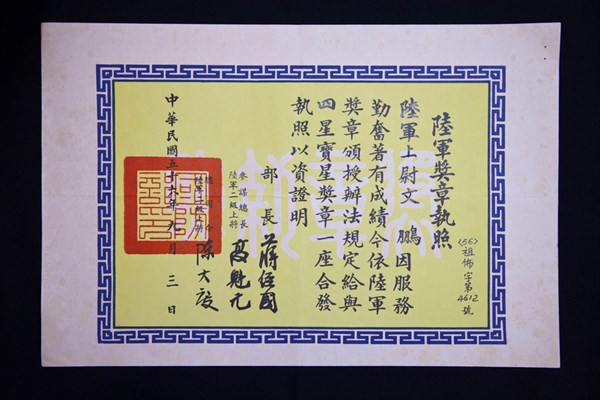 陸軍獎章執照
(56)祖佛字第4612號
陸軍上尉文 鵬因服務
勤奮著有成績今依陸軍
獎章頒授辦法規定給與
四星寶星獎章一座合發
執照以資證明
部長 蔣經國
參謀總長
陸軍二級上將 高魁元
總司令
陸軍二級上將 陳大慶
中華民國五十六年九月三日